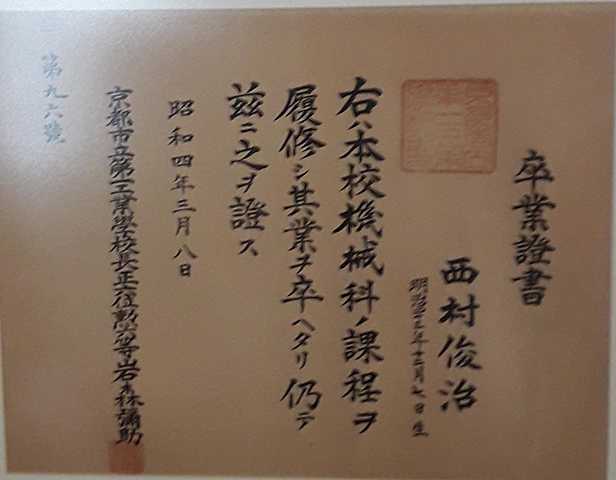 卒業證書
西村俊治
右ハ本校機械科ノ課程ヲ
履修シ其業ヲ卒ヘタリ仍テ
茲ニ之ヲ證ス
昭和四年三月八日
京都市立第一工業學校長正 位勳 等岩 森彌助
第九六號